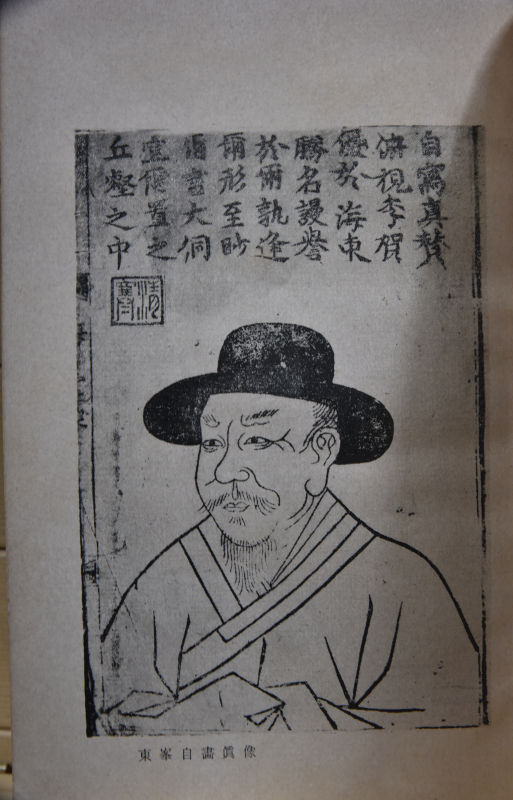 自寫真贊
俯視李賀
優於海東
騰名謾譽
於爾孰逢
爾形至眇
爾言大侗
宜爾置之
丘壑之中
東峯自畵眞像